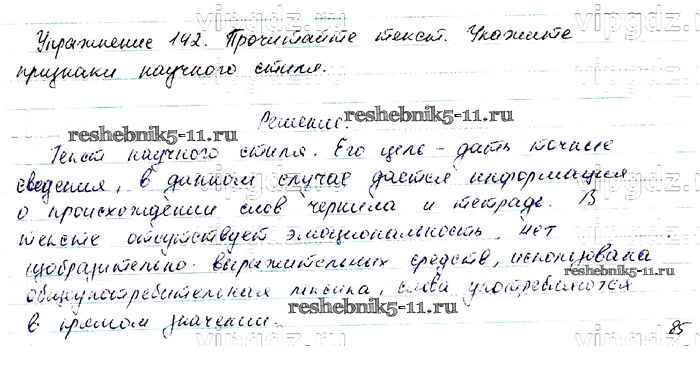 Упражнение 142. Прочитайте текст. Укажите
признаки научного стиля.
Решение.
Текст научного стиля. Его цель - дать точные
сведения, в данном случае дается информация
о происхождении слов чернила и тетрадь. В
тексте отсутствует эмоциональность, нет
изобразительно-выразительных средств, использована
общеупотребительная лексика, слова употребляются
в прямом значении.
85
reshebnik5-11.ru
reshebnik5-11.ru
reshebnik5-11.ru
vipgdz.ru